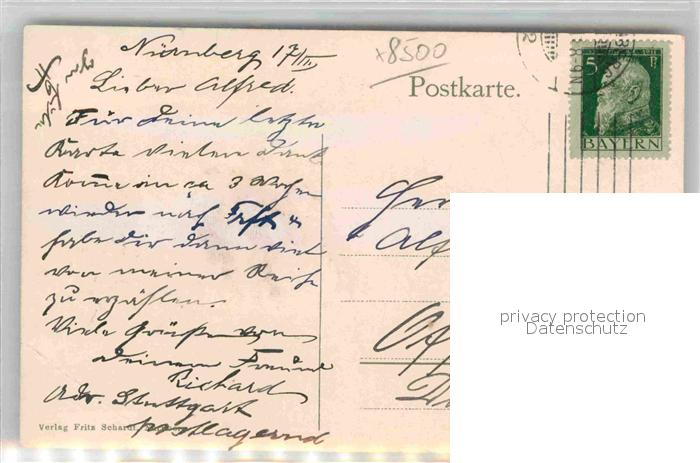 Nürnberg 17/III.
x8500
Lieber Alfred.
Für Deine letzte
Karte vielen Dank
Komme in ca 3 Wochen
wieder nach
habe dir dann viel
von meiner Reise
zu erzählen.
Viele Grüße von
Deinem Freund
Richard
Adr. Stuttgart
postlagernd
Verlag Fritz Schardt,
Postkarte.
5 P
BAYERN
Alf
privacy protection
Datenschutz